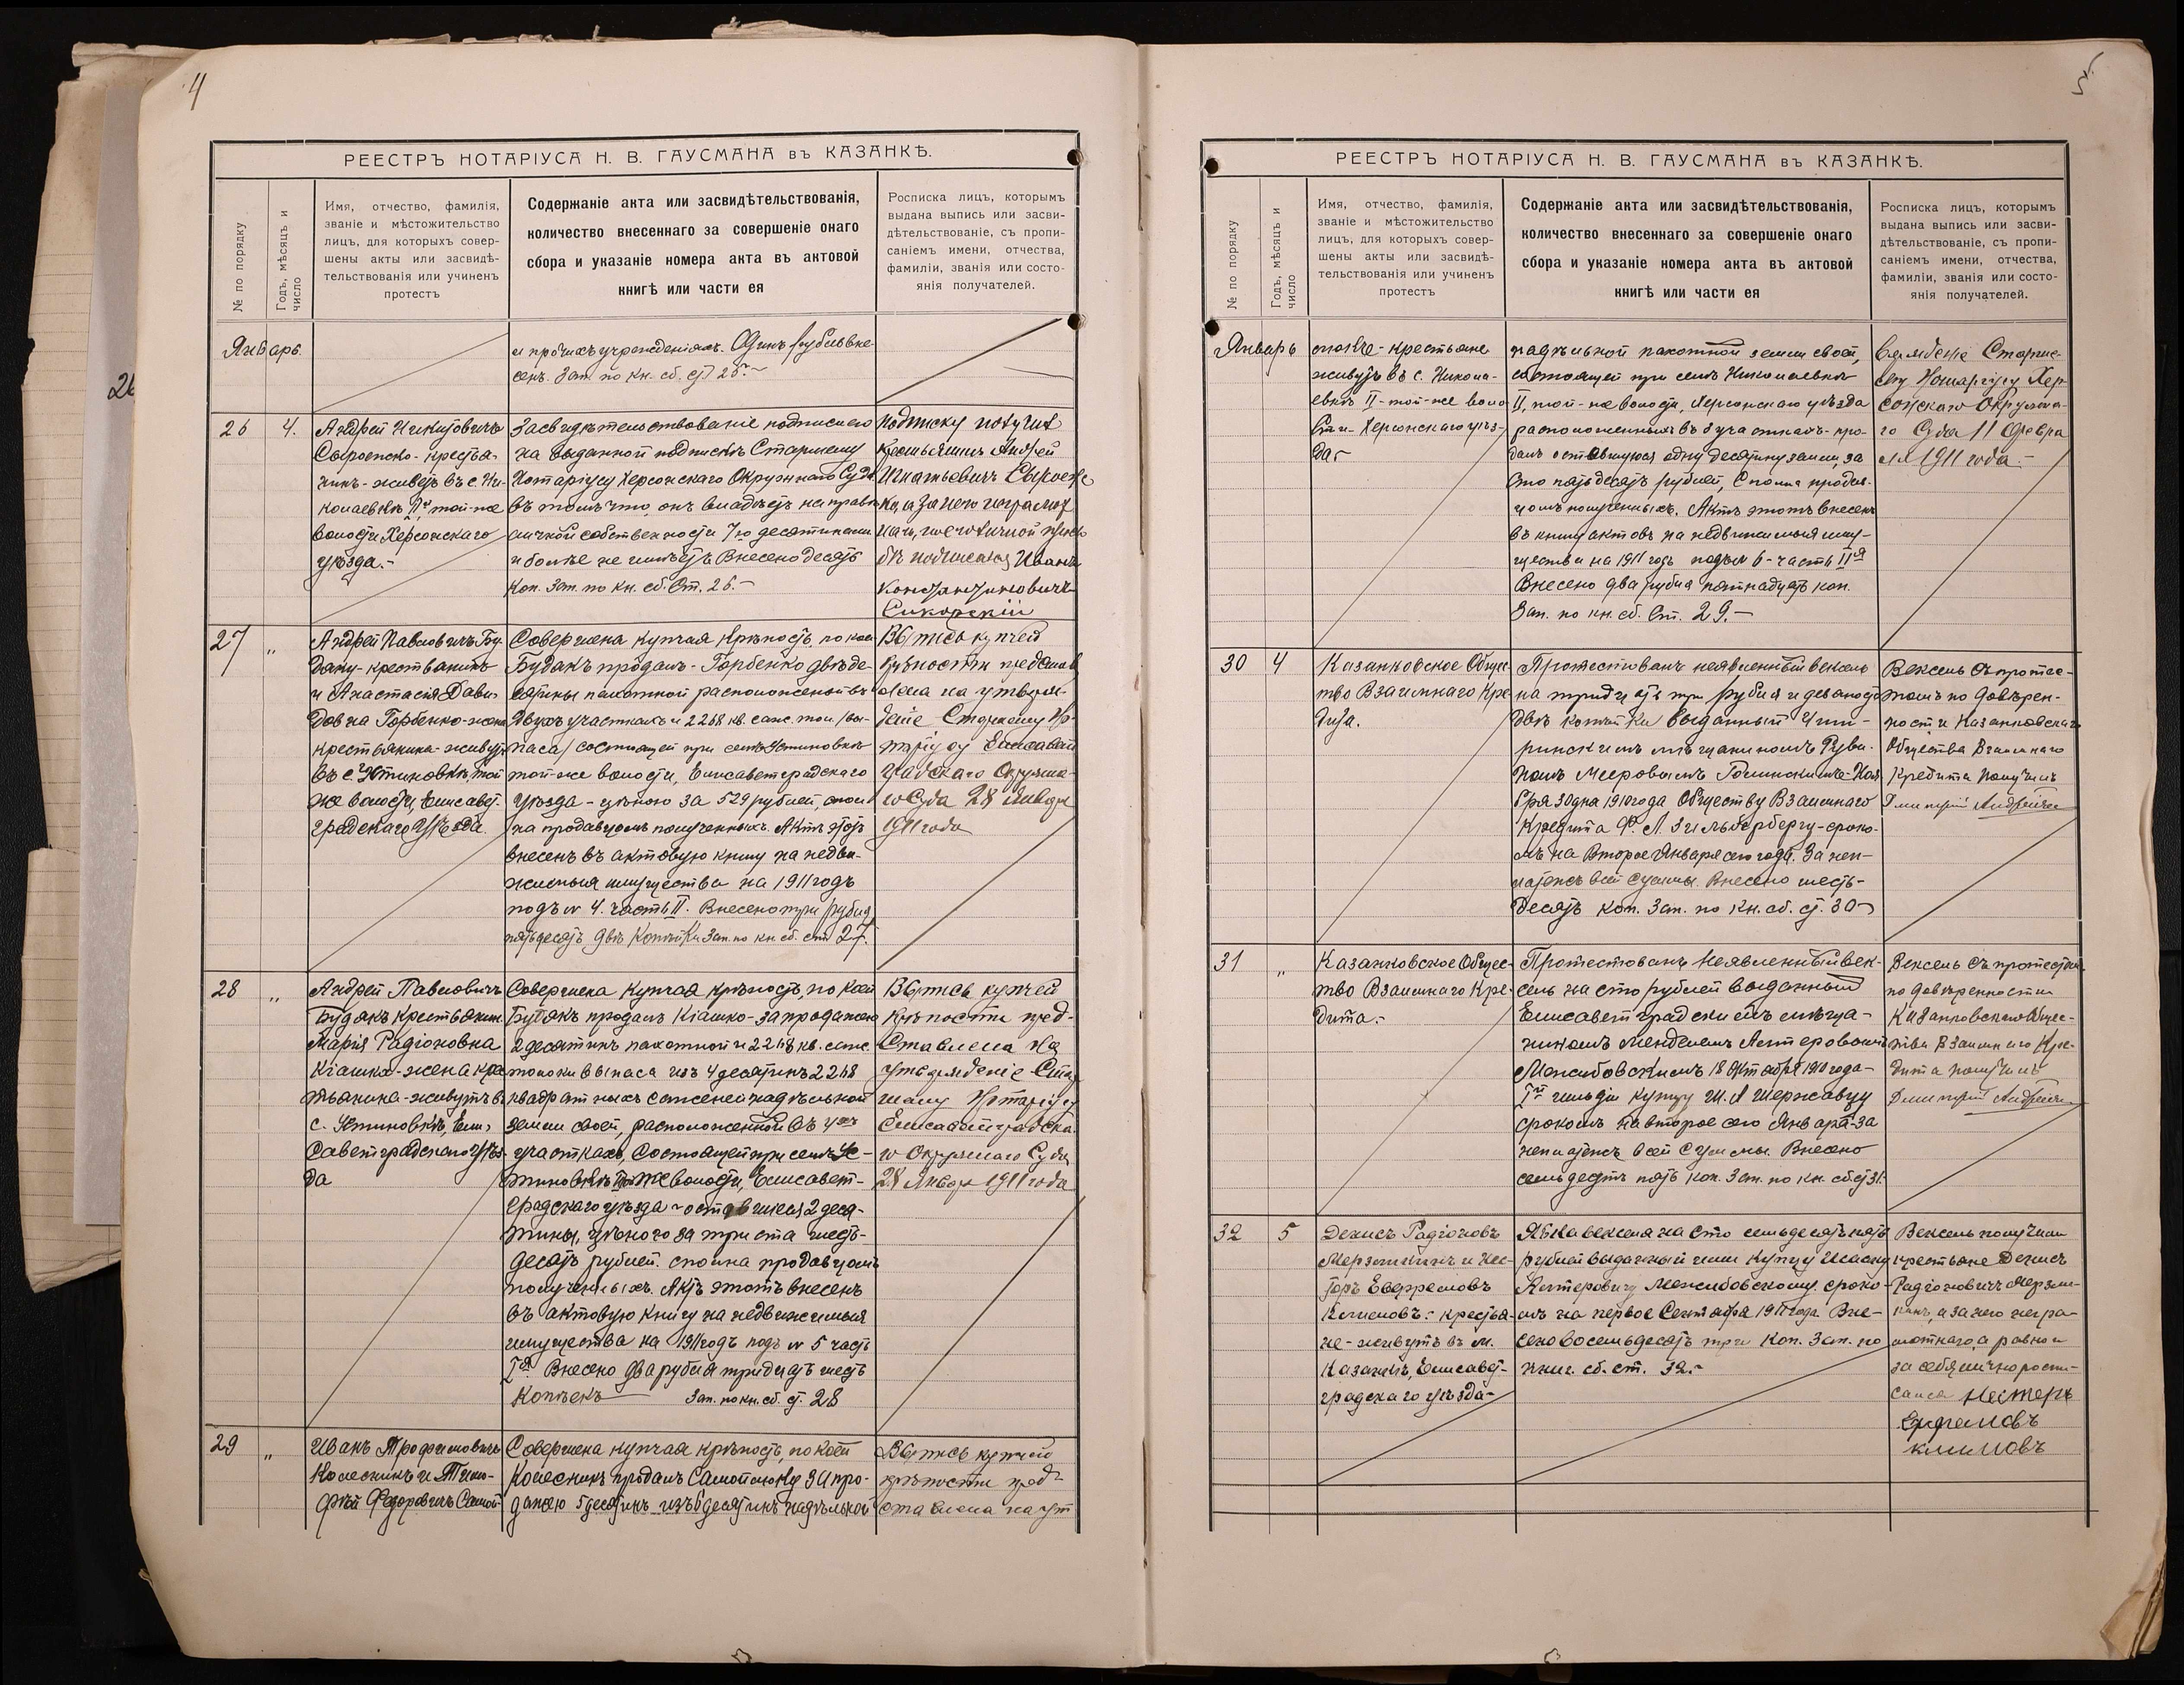 4
РЕЕСТРЪ НОТАРІУСА Н. В. ГАУСМАНА въ КАЗАНКѢ.
№ по порядку
Годъ, мѣсяцъ и
число
Имя, отчество, фамилія,
званіе и мѣстожительство
лицъ, для которыхъ совер-
шены акты или засвидѣ-
тельствованія или учиненъ
протестъ
Содержаніе акта или засвидѣтельствованія,
количество внесеннаго за совершеніе онаго
сбора и указаніе номера акта въ актовой
книгѣ или части ея
Росписка лицъ, которымъ
выдана выпись или засви-
дѣтельствованіе, съ пропи-
саніемъ имени, отчества,
фамиліи, званія или состо-
янія получателей.
Январь.
и прочихъ учрежденіяхъ. Одинъ рубль вне-
сенъ. Зап. по кн. сб. ст 25.
26
4.
Андрей
Сыроежко - крестья-
нинъ - живетъ въ с. Ни-
колаевкѣ II, той-же
волости Херсонскаго
уѣзда.-
Засвидѣтельствованіе подписи его
на выданной подпискѣ Старшему
Нотаріусу Херсонскаго Окружнаго Суда
въ томъ что, онъ владѣетъ на правѣ
личной собственности 7-ю десятинами
и болѣе не имѣетъ. Внесено десять
коп. Зап. по кн. сб. Ст. 26.-
Подписку получилъ
Крестьянинъ Андрей
Игнатьевичъ Сыроеж
ко, а за него неграмот
наго, по его личной прось
бѣ подписался Иванъ
Константиновичъ
Сикорскій
27
"
Андрей Павловичъ Бу-
дакъ - крестьянинъ
и Анастасія Дави-
довна Горбенко - жена
крестьянина - живутъ
въ с. Устиновкѣ, той
же волости, Елисавет-
градскаго Уѣзда.
Совершена купчая крѣпость, по коей
Будакъ продалъ - Горбенко двѣ де-
сятины пахотной расположенной въ
двухъ участкахъ и 2268 кв. саж. тол. /вы-
паса/ состоящей при селѣ Устиновкѣ
той-же волости, Елисаветградскаго
уѣзда - цѣною за 529 рублей, спол
на продавцомъ полученныхъ. Актъ этотъ
внесенъ въ актовую книгу на недви-
жимыя имущества на 1911 годъ
подъ № 4. часть II. Внесено три рубля
пятьдесятъ двѣ копѣйки Зап. по кн сб. ст. 27.
Выпись купчей
крѣпости представ
лена на утверж-
деніе Старшему Но-
таріусу Елисавет
градскаго Окружна-
го Суда 28 Января
1911 года
28
"
Андрей Павловичъ
Будакъ крестьянин.
Марія Радіоновна
Кіашко - жена кре
стьянина - живутъ въ
с. Устиновкѣ, Ели-
саветградскаго Уѣз-
да
Совершена купчая крѣпость, по коей
Будакъ продалъ Кіашко - за продажею
2 десятинъ пахотной и 2268 кв. саж.
толоки выпаса изъ 4 десятинъ 2268
квадратныхъ саженей надѣльной
земли своей, расположенной въ
участкахъ, состоящей при селѣ Ус-
тиновкѣ той же волости, Елисавет-
градскаго уѣзда - оставшіяся 2 деся-
тины, цѣною за триста шесть-
десятъ рублей. сполна продавцомъ
полученныхъ. Актъ этотъ внесенъ
въ актовую книгу на недвижимыя
имущества на 1911 годъ подъ № 5 часть
Внесено два рубля тридцать шесть
копѣекъ Зап. по кн. сб. ст. 28
Выпись купчей
крѣпости пред-
ставлена на
утвержденіе Стар
шему Нотаріусу
Елисаветградска-
го Окружнаго Суда
28 Января 1911 года
29
"
Иванъ Трофимовичъ
Колесникъ и Тимо-
фей Федоровичъ Самой-
Совершена купчая крѣпость, по коей
Колесникъ продалъ Самойлюку за про-
дажею 5 десятинъ изъ 6 десятинъ надѣльной
Выпись купчей
крѣпости пред-
ставлена на ут
5
РЕЕСТРЪ НОТАРІУСА Н. В. ГАУСМАНА въ КАЗАНКѢ.
№ по порядку
Годъ, мѣсяцъ и
число
Имя, отчество, фамилія,
званіе и мѣстожительство
лицъ, для которыхъ совер-
шены акты или засвидѣ-
тельствованія или учиненъ
протестъ
Содержаніе акта или засвидѣтельствованія,
количество внесеннаго за совершеніе онаго
сбора и указаніе номера акта въ актовой
книгѣ или части ея
Росписка лицъ, которымъ
выдана выпись или засви-
дѣтельствованіе, съ пропи-
саніемъ имени, отчества,
фамиліи, званія или состо-
янія получателей.
Январь
крестьяне
живутъ въ с. Никола-
евкѣ II-той-же воло
сти - Херсонскаго уѣз-
да -
надѣльной пахотной земли своей,
состоящей при селѣ Николаевкѣ
II, той-же волости, Херсонскаго уѣзда
расположенныхъ въ участкахъ - про-
далъ оставшуюся одну десятину земли, за
сто пятьдесятъ рублей, Сполна продав-
цомъ полученныхъ. Актъ этотъ внесенъ
въ книгу актовъ на недвижимыя иму-
щества на 1911 годъ подъ № 6 - часть II-я
Внесено два рубля пятнадцать коп.
Зап. по кн. сб. Ст. 29.-
вержденіе Старше-
му Нотаріусу Хер
сонскаго Окружна-
го Суда 11 Февра
ля 1911 года.-
30
4
Казанковское Общес-
тво Взаимнаго Кре
дита.
Протестованъ неявленный вексель
на тридцать три рубля и девяносто
двѣ копѣйки выданный
мѣщаниномъ Руви-
номъ Мееровымъ Ноя-
бря 30 дня 1910 года Обществу Взаимнаго
Кредита Ф. Л. Зильбербергу - сроко-
мъ на Второе Января сего года. За неп-
латежъ всей суммы. Внесено шесть-
десятъ коп. Зап. по кн. сб. ст. 30
Вексель съ протес-
томъ по довѣрен-
ности Казанковскаго
Общества Взаимнаго
Кредита получилъ
Дмитрій
31
"
Казанковское Общес-
тво Взаимнаго Кре-
дита.-
Протестованъ неявленный век-
сель на сто рублей выданный
Елисаветградскимъ мѣща-
ниномъ Менделемъ Лейтеровымъ
Межибовскимъ 18 Октября 1910 года -
гильдіи купцу Ш. Л Шержавцу
срокомъ на второе сего Января - за
неплатежъ всей суммы. Внесено
семьдесятъ пять коп. Зап. по кн. сб. ст 31.
Вексель съ протестом
по довѣренности
Казанковскаго Общес-
тва Взаимнаго Кре-
дита получилъ
Дмитрій
32
5
Денисъ Радіоновъ
и Нес-
торъ Евфремовъ
Климовъ: крестья-
не - живутъ въ м.
Казанкѣ, Елисавет-
градскаго уѣзда -
Явка векселя на сто семьдесятъ пять
рублей выданный ими купцу
Лейтеровичу Межибовскому. сроко-
мъ на первое Сентября 1911 года. Вне-
сено восемьдесятъ три коп. Зап. по
книг. сб. ст. 32.-
Вексель получили
крестьяне Денисъ
Радіоновичъ
а за него негра-
мотнаго, а равно и
за себя лично роспи-
сался Нестеръ
Климовъ